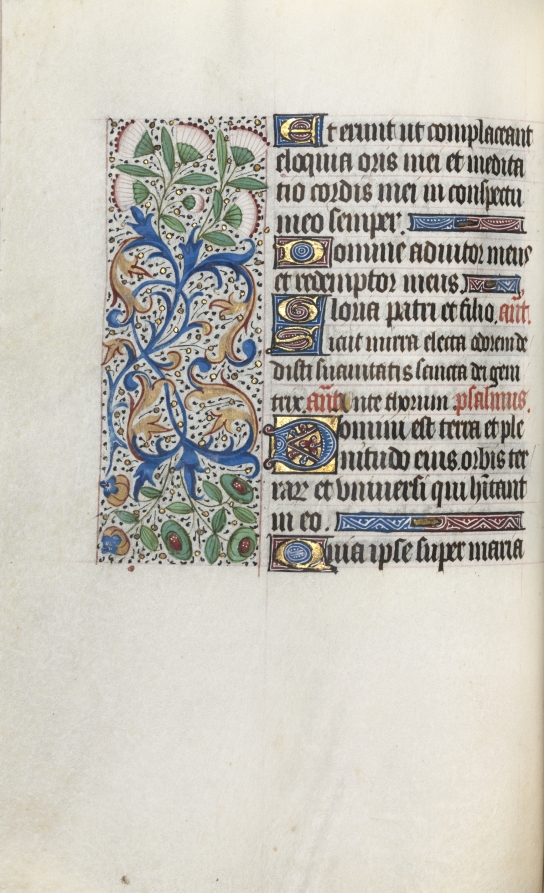 Et erunt ut complaceant
eloquia oris mei et medita
tio cordis mei in conspectu
meo semper.
Domine adiutor meus
et redemptor meus.
Gloria patri et filio. añt.
Sicut mirra electa odorem de
disti suauitatis sancta dei geni
trix. añt. Ante thorum psalmus.
Domini est terra et ple
nitudo eius. orbis ter
rarꝝ et vniuersi qui hītant
in eo.
Quia ipse super maria